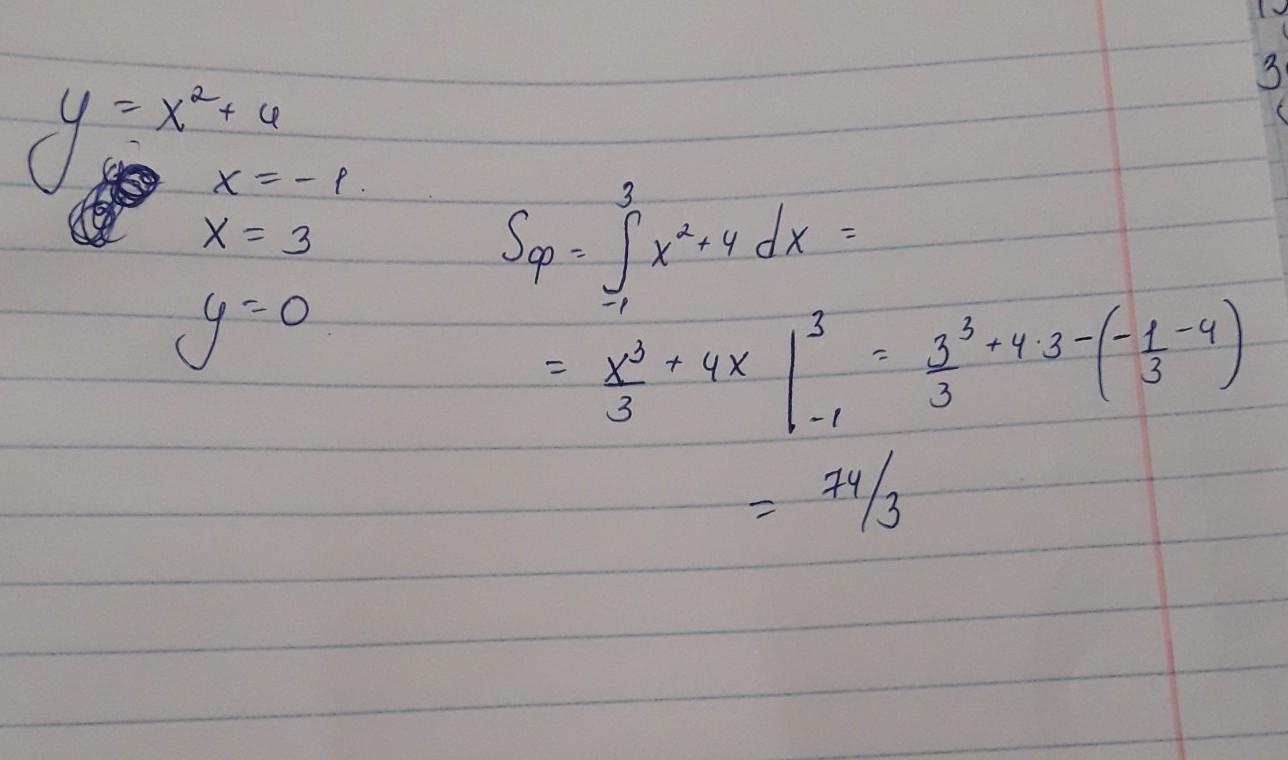 y = x² + 4
x = -1.
x = 3
y = 0
Sф = ∫₋₁³ x² + 4 dx =
= x³/3 + 4x |₋₁³ = 3³/3 + 4·3 - (-1/3 - 4)
= 74/3